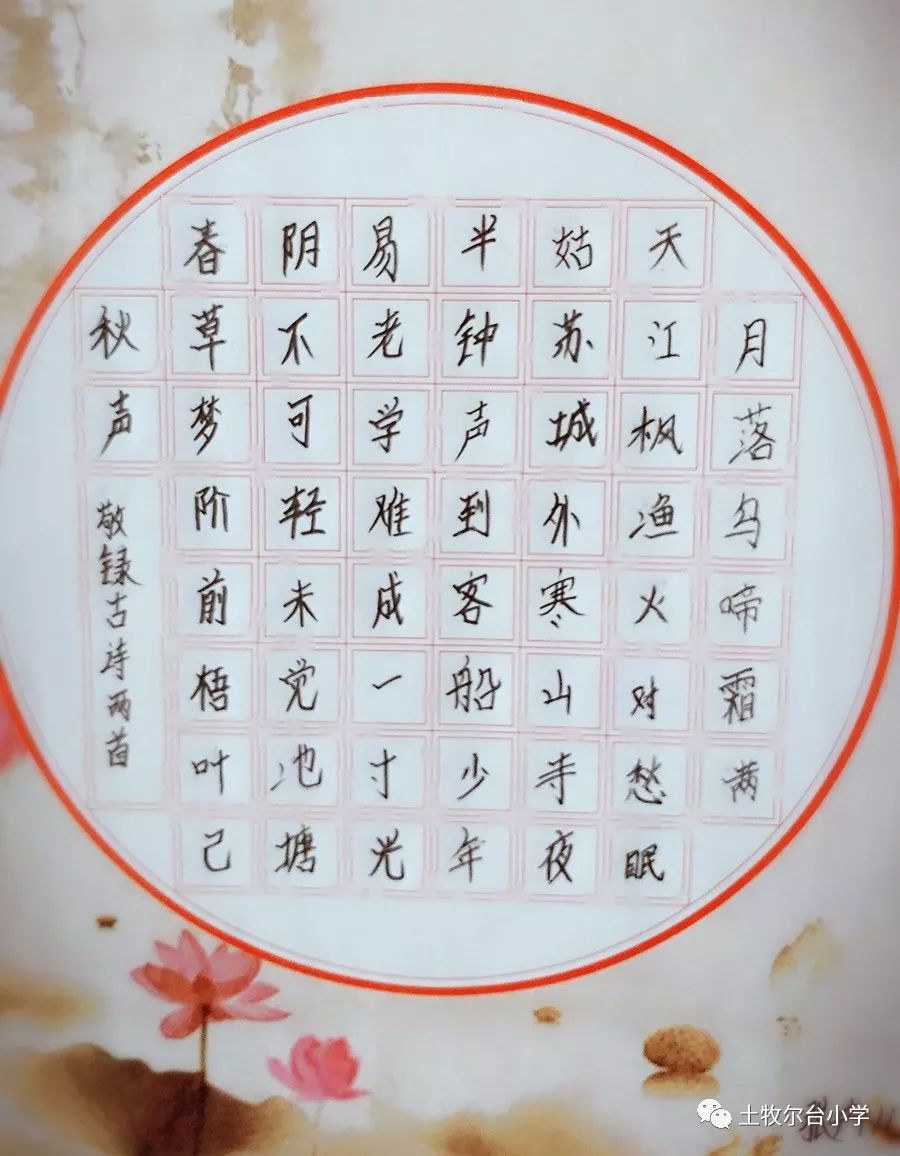 月落乌啼霜满
天江枫渔火对愁眠
姑苏城外寒山寺夜
半钟声到客船少年
易老学难成一寸光
阴不可轻未觉池塘
春草梦阶前梧叶己
秋声
敬録古诗两首
土牧尔台小学